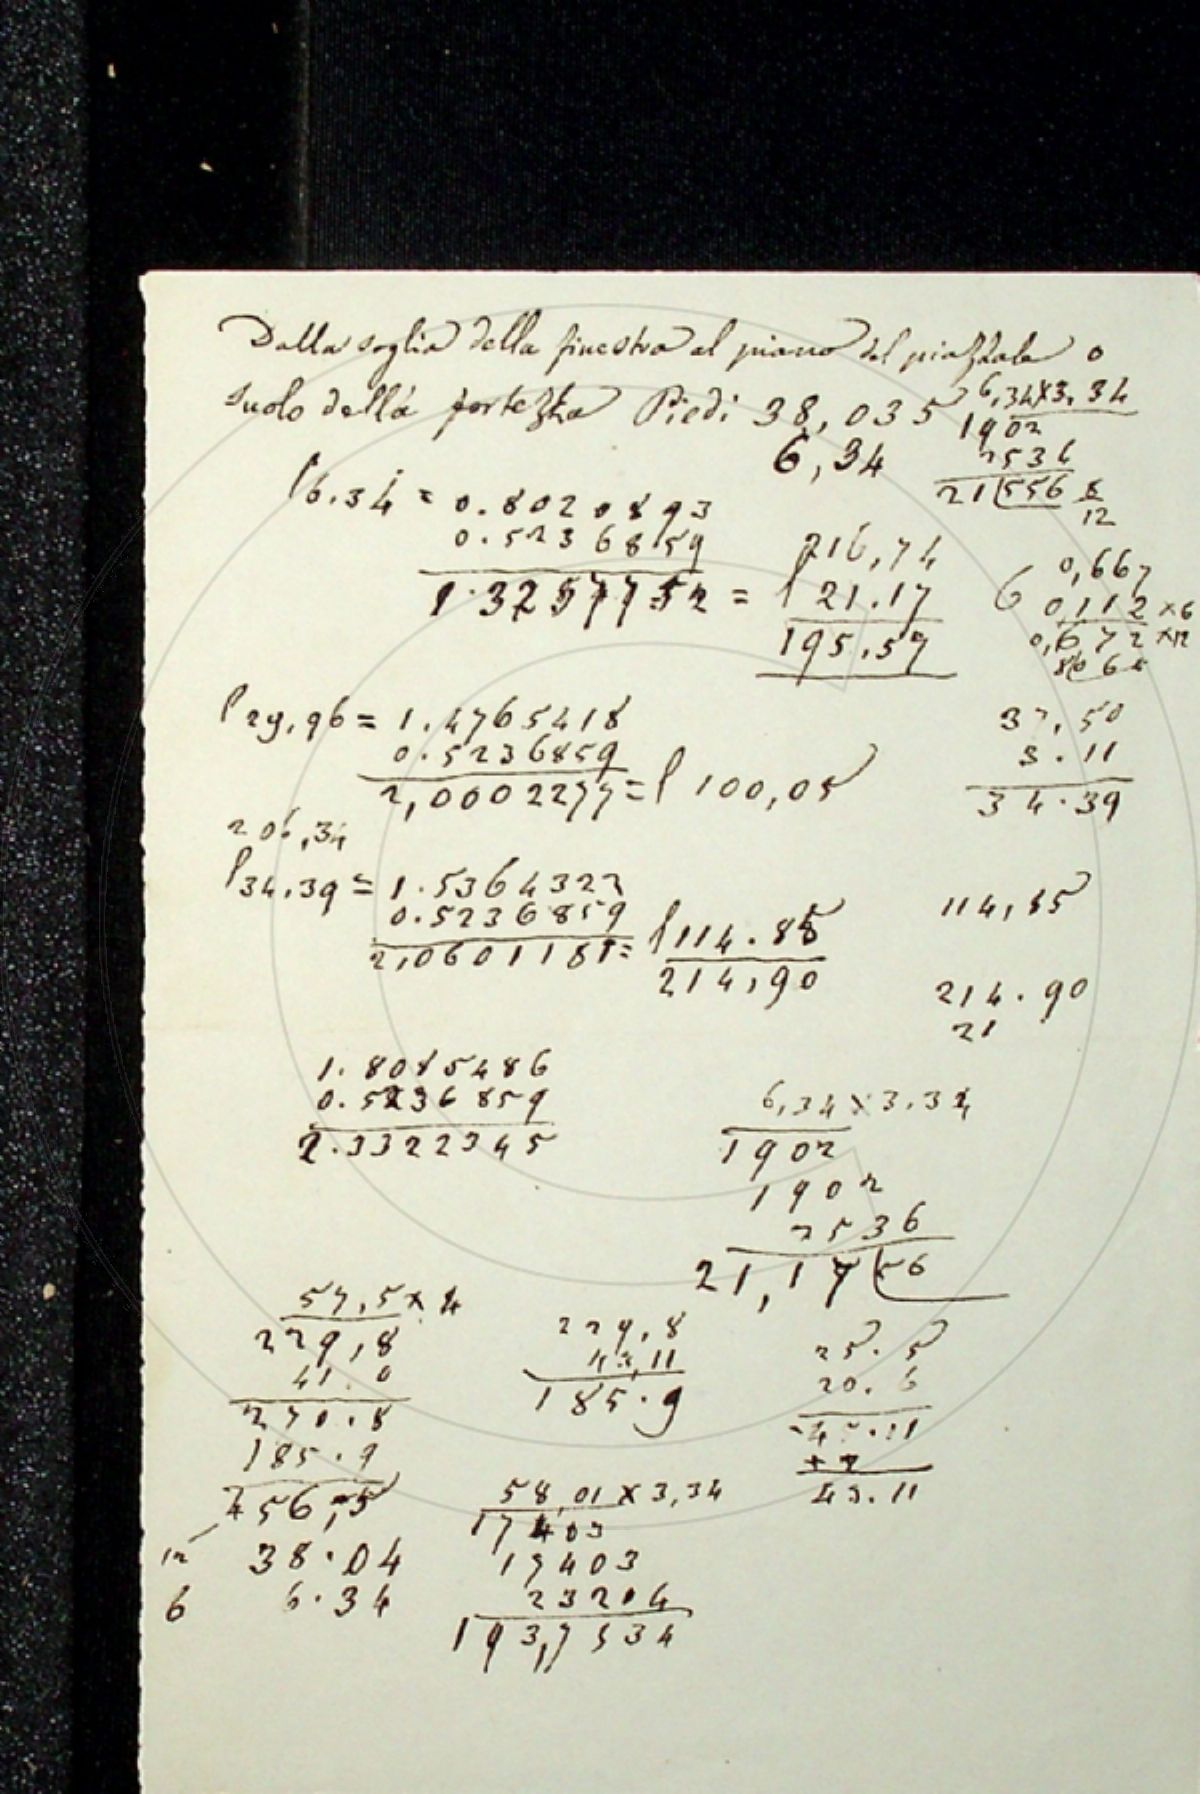 Dalla soglia della finestra al piano del piazzale o
suolo della fortezza Piedi 38,035
6,34
6,34×3.34
1902
2536
21(556
8/12
l6.34 = 0.8020893
0.5236859
1.3257752 = l
216,74
21.17
195.57
0,667
6 0,112 ×6
0,672 ×12
l29,96 = 1.4765418
0.5236859
2,0002277 = l 100,05
37,50
3.11
34.39
206,34
l34.39 = 1.5364322
0.5236859
2,0601181 = l114.85
214,90
114,85
214.90
21
1.8085486
0.5236859
2.3322345
6,34×3.34
1902
1902
2536
21,17(56
57,5×4
229,8
41.0
270.8
185.9
456,5
12 38.04
6 6.34
229,8
43,11
185.9
25.5
20.6
45.11
43.11
58,01×3,34
17403
17403
23204
193,7534